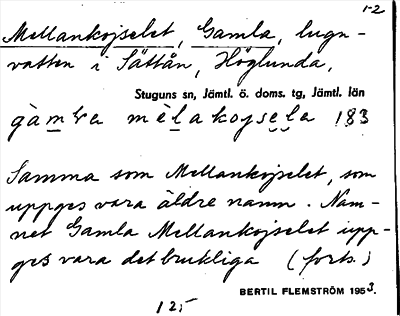 1-2
Mellankojselet, Gamla, lugn-
vatten i Sättån, Höglunda,
Stuguns sn, Jämtl. ö. doms. tg, Jämtl. län
gàmḷa mèlakojsela 183
Samma som Mellankojselet, som
uppges vara äldre namn. Nam-
net Gamla Mellankojselet upp-
ges vara det brukliga (forts.)
BERTIL FLEMSTRÖM 1953.
12,-